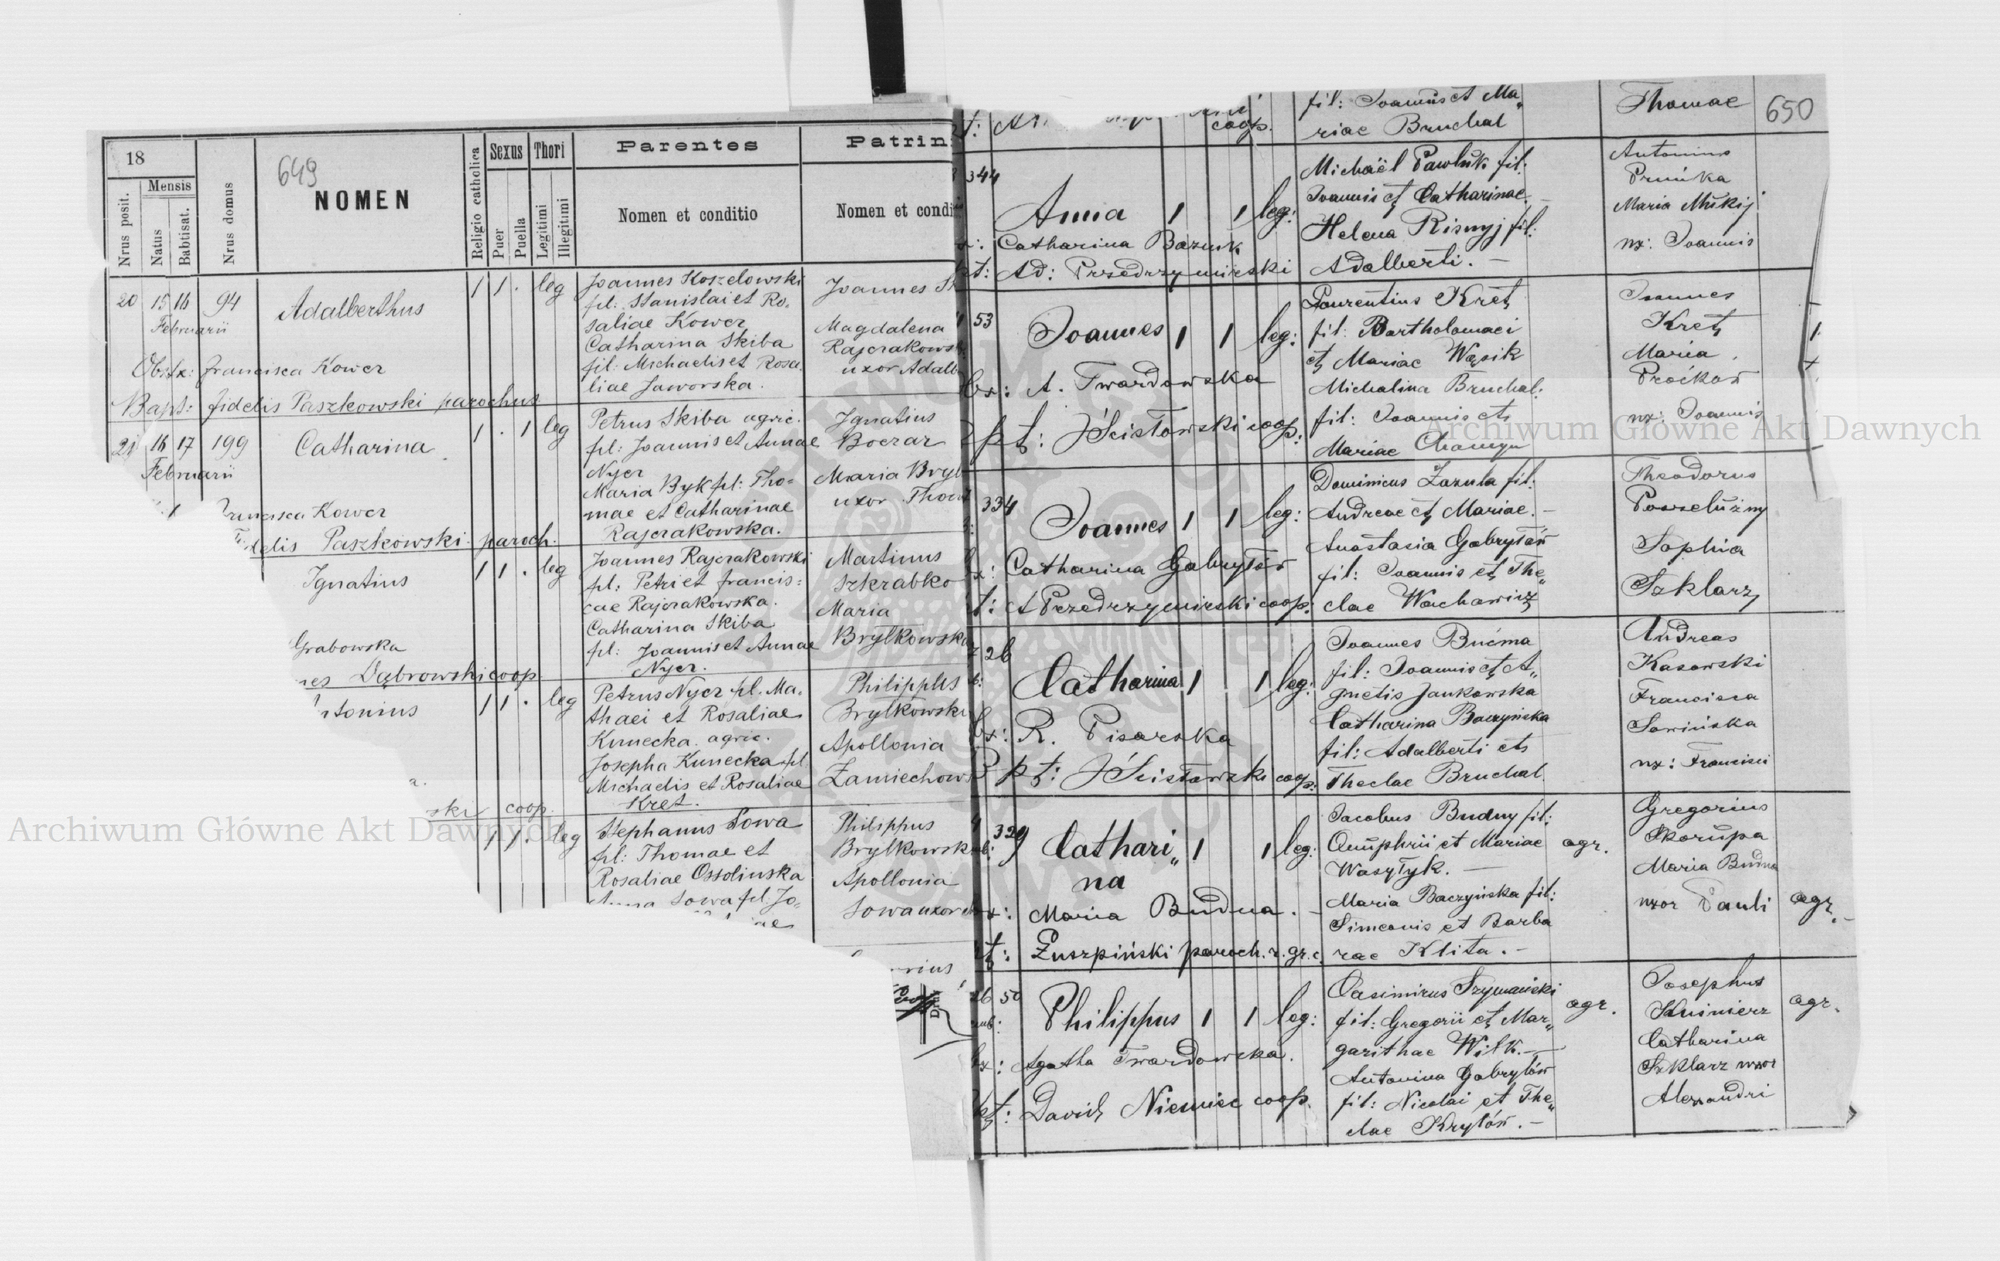 18
649
Nrus posit.
Mensis
Natus
Babtisat.
Nrus domus
NOMEN
Religio catholica
Sexus
Puer
Puella
Thori
Legitimi
Illegitimi
Parentes
Nomen et conditio
Patrin
Nomen et condi
20 15 16 94 Adalberthus 1 1 . leg
Februarii
Obstx: Francisca Kower
Bapt: Fidelis Paszkowski parochus
Joannes Koszelowski
fil: Stanislai et Ro-
saliae Kower
Catharina Skiba
fil: Michaelis et Rosa-
liae Jaworska.
Joannes
Magdalena
Rajczakowsk
uxor Adalb
21 16 17 199 Catharina 1 . 1 leg
Februarii
Francisca Kower
Fidelis Paszkowski paroch.
Petrus Skiba agric.
fil: Joannis et Annae
Nycz
Maria Byk fil: Tho-
mae et Catharinae
Rajczakowska.
Ignatius
Boczar
Maria Bryl
uxor Thom
Ignatius 1 1 . leg
Grabowska
nes Dąbrowski coop
Joannes Rajczakowski
fil: Petri et Francis-
cae Rajczakowska.
Catharina Skiba
fil: Joannis et Annae
Nycz.
Martinus
Szkrabko
Maria
Brylkowska
Antonius 1 1 . leg
ski coop.
Petrus Nycz fil. Ma-
thaei et Rosaliae
Kunecka agric.
Josepha Kunecka fil
Michaelis et Rosaliae
Kret.
Philippus
Brylkowski
Apollonia
Zamiechows
1 1 . leg
Stephanus Sowa
fil: Thomae et
Rosaliae Ossolinska
Anna Sowa fil. Jo-
Philippus
Brylkowsk
Apollonia
Sowa uxor
coop.
fil: Joannis et Ma„
riae Bruchal
Thomae
650
344 Anna 1 1 leg:
Catharina Bazuk
Ad: Przedrzymirski
Michaël Pawluk fil:
Joannis et Catharinae
Helena Risnyj fil:
Adalberti. —
Antonius
Prunka
Maria Mukij
ux: Joannis
53 Joannes 1 1 leg:
bx: A. Twardowska
pt: J Ścisłowski coop:
Laurentius Kret
fil: Bartholomaei
et Mariae Wąsik
Michalina Bruchal:
fil: Joannis et
Mariae
Joannes
Kret
Maria
Proćkow
ux: Joannis
334 Joannes 1 1 leg:
Catharina Gabrylów
t: A Przedrzymirski coop.
Dominicus Zazula fil:
Andreae et Mariae. —
Anastasia Gabrylów
fil: Joannis et The„
clae Wachawicz
Theodorus
Powzelużny
Sophia
Szklarz
26 Catharina 1 1 leg:
bx: R. Pisarska
pt: J Ścisłowski coop:
Joannes Bućma
fil: Joannis et A„
gnetis Jankowska
Catharina Baczyńska
fil: Adalberti et
Theclae Bruchal
Andreas
Kasowski
Francisca
Sowińska
ux: Francisci
329 Cathari„ 1 1 leg:
na
x: Maria Budna. —
t: Zuszpiński paroch. r. gr. c.
Jacobus Budny fil:
Onuphrii et Mariae agr.
Wasyłyk. —
Maria Baczyńska fil:
Simeonis et Barba
rae Klita. —
Gregorius
Skorupa
Maria Budna
uxor Pauli agr. —
26 50 Philippus 1 1 leg:
bx: Agatha Twardowska.
pt: David Niemiec coop.
Casimirus Szymański
fil: Gregorii et Mar„ agr.
garithae Wilk. —
Antonina Gabrylów
fil: Nicolai et The„
clae Krylów. —
Josephus
Kuimierz agr.
Catharina
Szklarz uxor
Alexandri
Archiwum Główne Akt Dawnych
Archiwum Główne Akt Dawnych